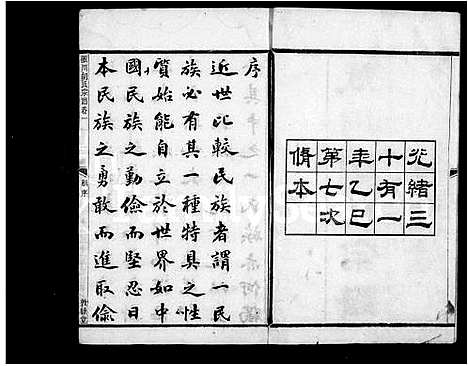 光緒三
十有一
年乙巳
第七次
脩本
序
近世比較民族者謂一民
族必有其一種特具之性
質始能自立於世界如中
國民族之勤儉而堅忍日
本民族之勇敢而進取條
氏宗譜卷一
序